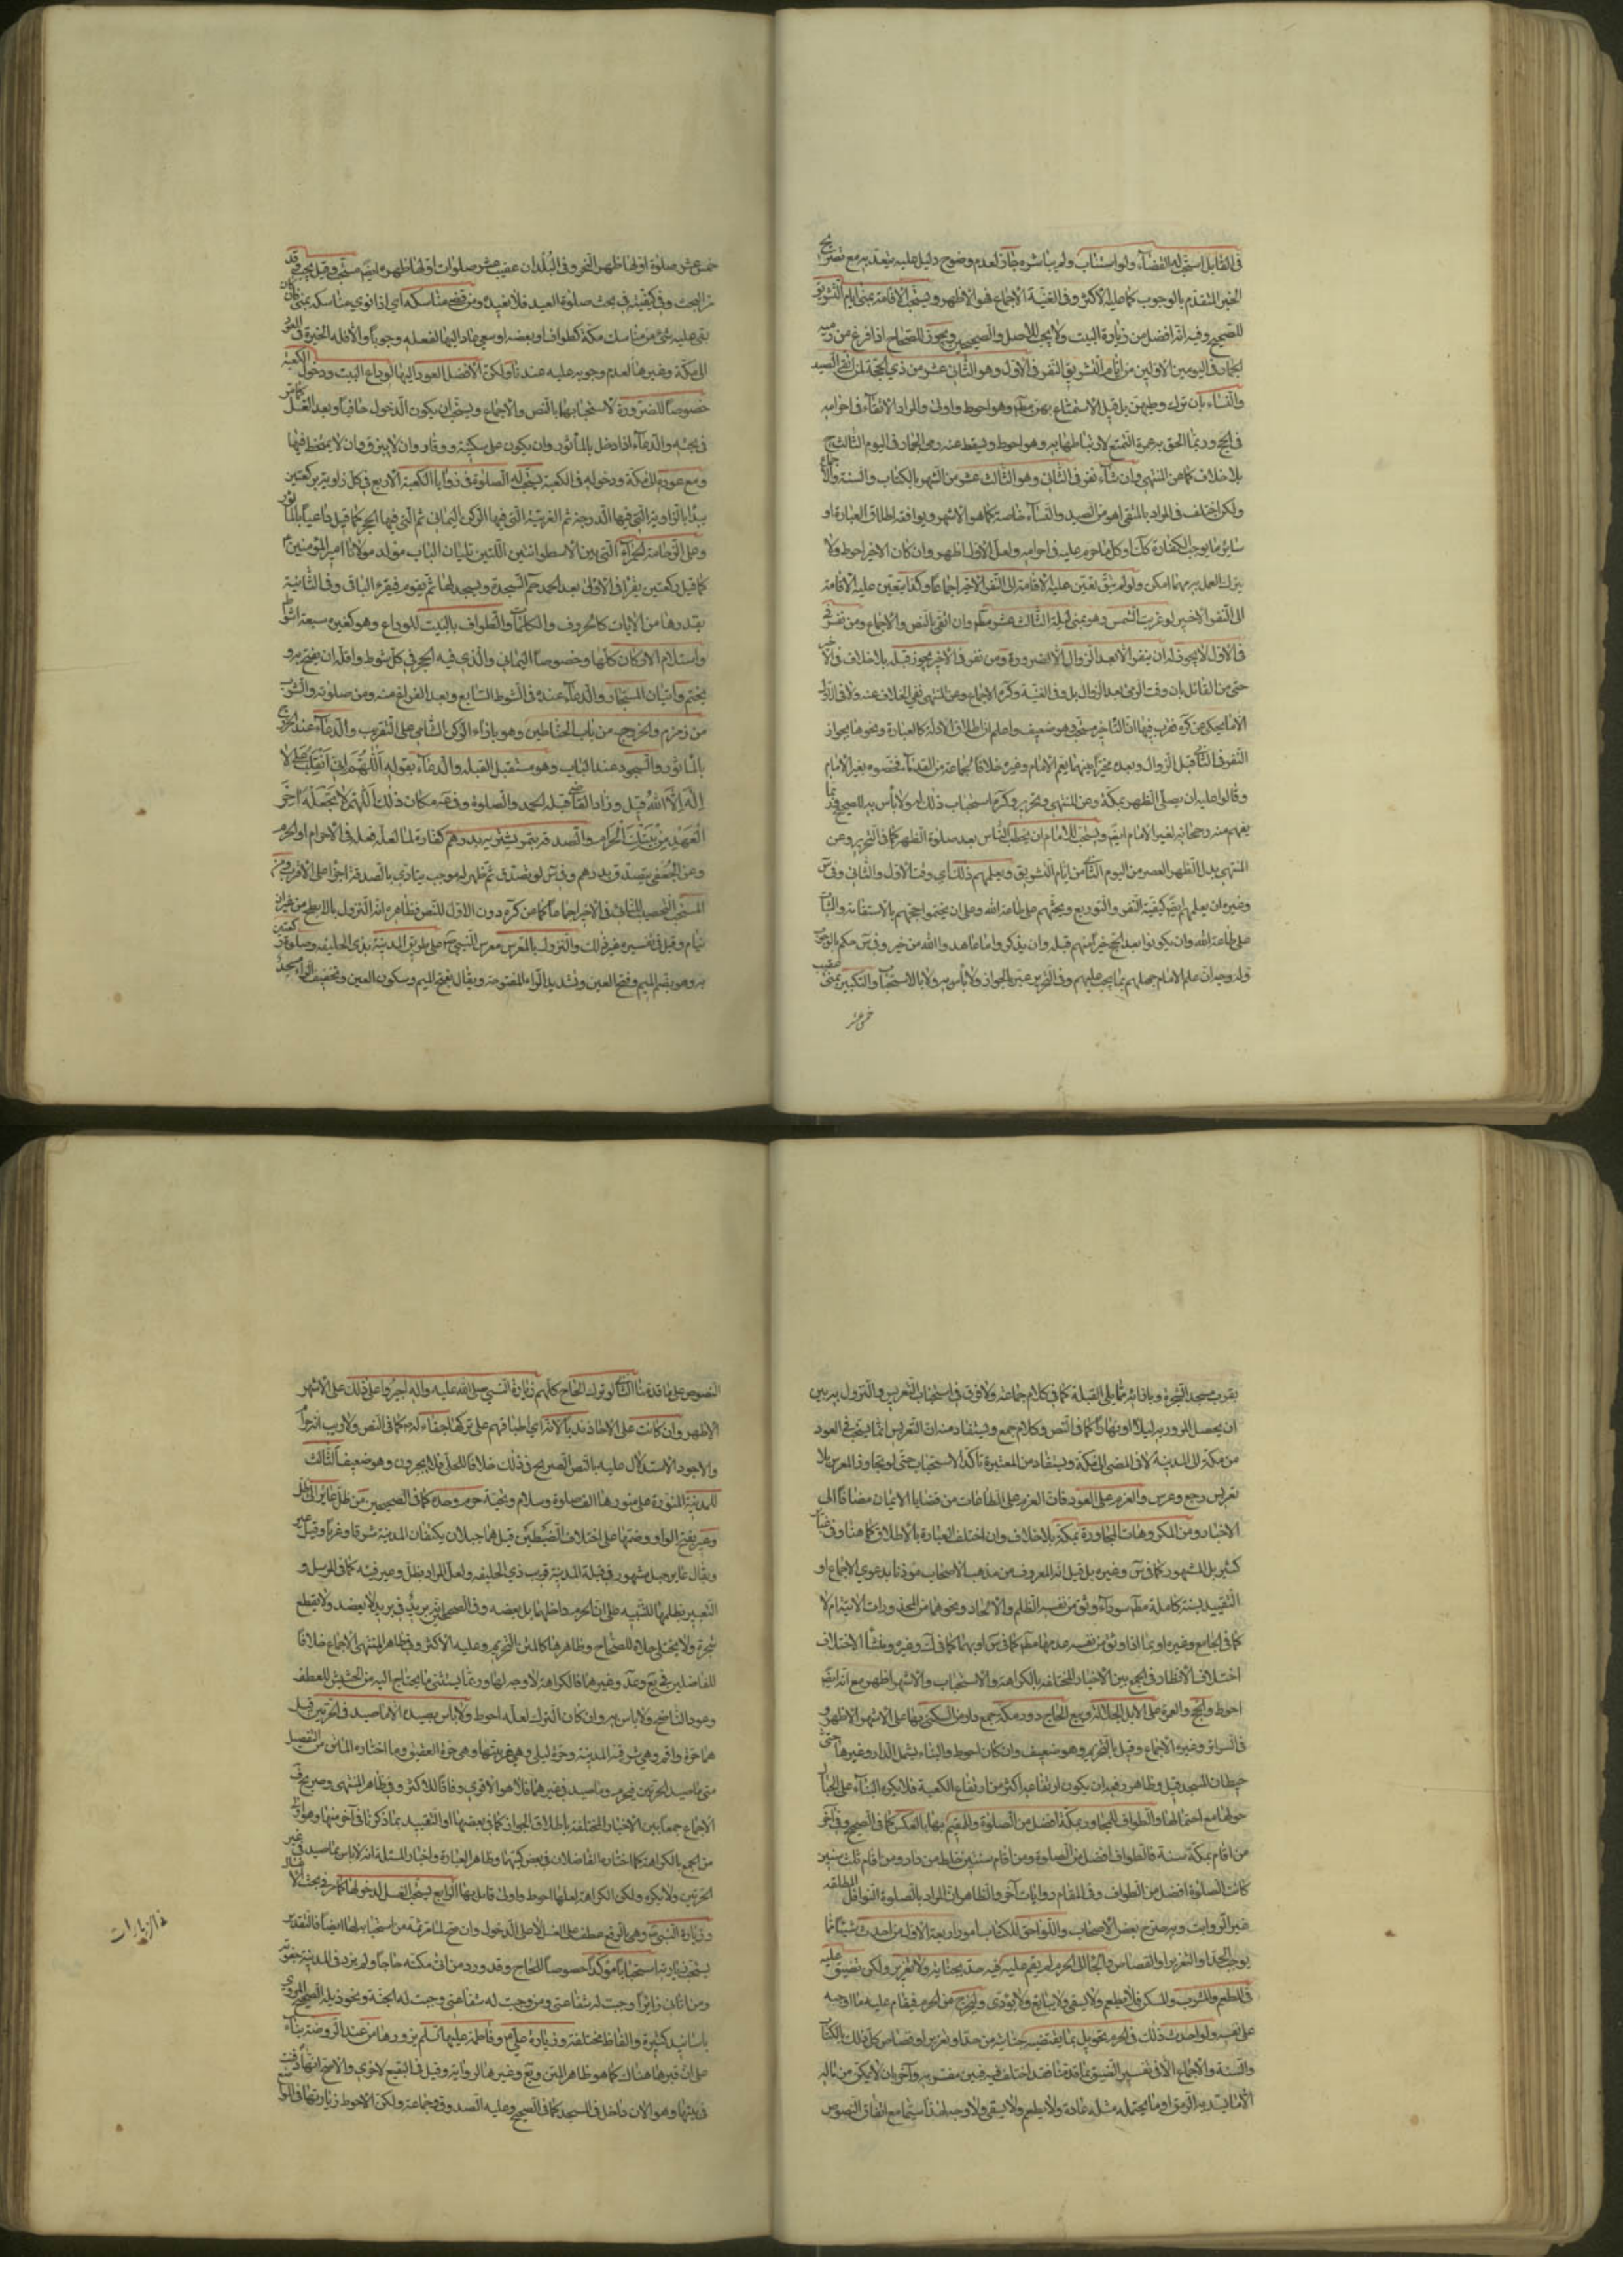 في القابل استحب له القضاء ولو استناب ولم يباشره جاز لعدم وضوح دليل عليه يعتد به مع تصريح
الخبر المتقدم بالوجوب كما عليه الأكثر وفي الغنية الاجماع هو الأظهر ويستحب الاقامة بمنى أيام التشريق
للصحيح وفيه انه افضل من زيارة البيت ولا يجب للأصل والصحيحين ويجوز للصحاح اذا فرغ من رميه
الجمار في اليومين الاولين من ايام التشريق النفر في الاول وهو الثاني عشر من ذي الحجة لمن اتقى الصيد
والنساء بان ترك وطيهن بل قيل الاستمتاع بهن مطم وهو احوط واولى والمراد الاتقاء في احرامه
في الحج وربما الحق به عمرة التمتع لارتباطها به وهو احوط ويسقط عنه رمي الجمار في اليوم الثالث ح
بلا خلاف كما عن المنتهى وان شاء نفر في الثاني وهو الثالث عشر من الشهر بالكتاب والسنة والاجماع
ولكن اختلف في المراد بالمتقى اهو من الصيد والنساء خاصة كما هو الاشهر ويوافقه اطلاق العبارة او
سائر ما يوجب الكفارة كما او كل ما حرم عليه في احرامه ولعل الاول اظهر وان كان الاخير احوط ولا
يترك العمل به مهما امكن ولو لم يتق تعين عليه الاقامة الى النفر الاخير اجماعا وكذا يتعين عليه الاقامة
الى النفر الاخير لو غربت الشمس وهو بمنى ليلة الثالث عشر مطم وان اتقى بالنص والاجماع ومن نفر في
في الاول لا يجوز له ان ينفر الا بعد الزوال الا لضرورة ومن نفر في الاخر يجوز قبله بلا خلاف
حتى من القائل بان وقت الرمي بعد الزوال بل وفي الغنية وكره الاجماع وعن المنتهى نفي الخلاف عنه
التفر في الثاني قبل الزوال وبعده مخيرا بينهما يعم الامام وغيره خلافا لجماعة من القدماء فخصوه بغير الامام
وقالوا عليه ان يصلي الظهر بمكة وعن المنتهى وتحرير وكره استحباب ذلك له ولا بأس به للصحيح
يفهم منه رجحانه لغير الامام ايضا ويستحب للامام ان يخطب الناس بعد صلوة الظهر كما في التحرير وعن
المنتهى بدل الظهر العصر من اليوم الثاني من ايام التشريق ويعلمهم ذلك اي وقت الاول والثاني
وغيره ان يعلمهم ايضا كيفية النفر والتوديع ويحثهم على طاعة الله وعلى ان يختموا حجهم بالاستقامة والثبات
على طاعة الله وان يكونوا بعد الحج خيرا منهم قبله وان يذكروا ما عاهدوا الله من خير
خمس عشر
خمس عشر صلوة اولها ظهر النحر وفي البلدان عقيب عشر صلوات اولها ظهره ايضا مستحب وقيل يجب وقد
مر البحث وفي كيفيته في بحث صلوة العيد فلا نعيده ومن قضى مناسكه اي اذا نوى مناسكه بمنى
بقي عليه شيء من مناسك مكة كطواف او بعضه او سعي عاد اليها لفعله وجوبا والا فله الخيرة في العود
الى مكة وغيرها لعدم وجوبه عليه عندنا ولكن الافضل العود اليها لوداع البيت ودخول الكعبة
خصوصا للصرورة لاستحبابها بالنص والاجماع ويستحب ان يكون الدخول حافيا وبعد الغسل كما مر
في بحثه والدعاء اذا دخل بالمأثور وان يكون على سكينة ووقار وان لا يبزق وان لا يمتخط فيها
ومع عوده الى مكة ودخوله في الكعبة يستحب له الصلوة في زوايا الكعبة الاربع في كل زاوية ركعتين
يبدأ بالزاوية التي فيها الدرجة ثم الغربية التي فيها الركن اليماني ثم التي فيها الحجر كما قيل داعيا بالمأثور
وعلى الرخامة الحمراء التي بين الاسطوانتين اللتين تليان الباب مولد مولانا امير المؤمنين
كما قيل ركعتين يقرا في الاولى بعد الحمد حم السجدة ويسجد لها ثم يقوم فيقرء الباقي وفي الثانية
بقدرها من الايات كالحروف والكلمات والطواف بالبيت للوداع وهو كغيره سبعة اشواط
واستلام الاركان كلها وخصوصا اليماني والذي فيه الحجر في كل شوط واقله ان يفتح به و
يختم واتيان المستجار والدعاء عنده في الشوط السابع وبعد الفراغ منه ومن صلوته والشرب
من زمزم والخروج من باب الحناطين وهو بازاء الركن الشامي على التقريب والدعاء عند الخروج
بالمأثور والسجود عند الباب وهو مستقبل القبلة والدعاء بقوله اللهم اني انقلب على لا
اله الا الله قيل وزاد القاضي قبله الحمد والصلوة وفي مكان ذلك اللهم لا تجعله اخر
العهد من بيتك الحرام والصدقة بتمر يشتريه بدرهم كفارة لما لعله فعله في الاحرام او الحرم
وعن الجعفي يتصدق بدرهم وفي س لو تصدق ثم ظهر له موجب يتادى بالصدقة اجزا على الاقرب ومن
المستحب التحصيب للنافر في الاخير اجماعا كما عن كره دون الاول للنص وظاهره انه النزول بالابطح من غير ان
ينام وقيل في تفسيره غير ذلك والنزول بالمعرس معرس النبي ص على طريق المدينة بذي الحليفة وصلوة ركعتين
به وهو بضم الميم وفتح العين وتشديد الراء المفتوحة ويقال بفتح الميم وسكون العين وتخفيف الراء مسجد
بقرب مسجد الشجرة وبازائه مما يلي القبلة كما في كلام جماعة ولا فرق في استحباب التعريس والنزول به بين
ان يحصل المرور به ليلا او نهارا كما في النص وكلام جمع ويستفاد منه ان التعريس انما يستحب في العود
من مكة الى المدينة لا في المضي الى مكة ويستفاد من المعتبرة تأكد الاستحباب حتى لو تجاوز المعرس بلا
تعريس رجع وعرس والعزم على العود فان العزم على الطاعات من قضايا الايمان مضافا الى
الاخبار ومن المكروهات المجاورة بمكة بلا خلاف وان اختلف العبارة بالاطلاق كما هنا وفي
كثير بل المشهور كما في س وغيره بل قيل انه المعروف من مذهب الاصحاب مؤذنا بدعوى الاجماع او
التقييد بسنة كاملة مطم سواء وثق من نفسه الظلم والالحاد ونحوهما من المحذورات الاتية ام لا
كما في الجامع وغيره او بما اذا وثق من نفسه عدمها مطم كما في س او بهما كما في ك وغيره ومنشأ الاختلاف
اختلاف الانظار في الجمع بين الاخبار المختلفة بالكراهة والاستحباب والاشهر اظهر مع انه ايضا
احوط والحج والعمرة على الابل الجلالة ومنع الحاج دور مكة جمع دار من السكنى بها على الاشهر الاظهر و
في السرائر وغيره الاجماع وقيل بالتحريم وهو ضعيف وان كان احوط والبناء يشمل الدار وغيرها حتى
حيطان المسجد قيل وظاهر رفعه ان يكون ارتفاعه اكثر من ارتفاع الكعبة فلا يكره البناء على الجبال
حولها مع احتمالها والطواف للمجاور بمكة افضل من الصلوة وللمقيم بها بالعكس كما في الصحيح وفي اخر
من اقام بمكة سنة فالطواف افضل من الصلوة ومن اقام سنتين خلط من ذا ومن ذا ومن اقام ثلث سنين
كانت الصلوة افضل من الطواف وفي المقام روايات آخر والظاهر ان المراد بالصلوة النوافل المطلقة
غير الرواتب وبه صرح بعض الاصحاب واللواحق للكتاب امور اربعة الاول من احدث شيئا مما
يوجب الحد او التعزير او القصاص والجأ الى الحرم لم يقم عليه فيه حد بجنايته ولا تعزير ولكن تضيق عليه
في المطعم والمشرب والمسكن فلا يطعم ولا يسقى ولا يبايع ولا يؤوى وليخرج من الحرم فيقام عليه ما اوجبه
على نفسه ولو احدث ذلك في الحرم قوبل بما يقتضيه جنايته من حد او تعزير او قصاص كل ذلك بالكتاب
والسنة والاجماع الا في تفسير التضييق بما قدمنا فقد اختلف فيه فبين مفسر به وآخر بان لا يمكن من ماله
الا ما يسد به الرمق او ما لا يحتمله مثله عادة ولا يطعم ولا يسقى ولا وجه لهذا سيما مع اتفاق النصوص
النصوص على ما قدمنا الثاني لو ترك الحاج كلهم زيارة النبي صلى الله عليه واله اجبروا على ذلك على الاشهر
الاظهر وان كانت على الاحاد ندبا لانه اي اطباقهم على تركها جفاء له ص كما في النص ولا ريب انه حرام
والاجود الاستدلال عليه بالنص الصريح في ذلك خلافا للحلي فلا يجبرون وهو ضعيف الثالث
للمدينة المنورة على منورها الف صلوة وسلام وتحية حرم وحده كما في الصحيحين من ظل عاير الى ظل
وعير بفتح الواو وضمها على اختلاف الضبطين قيل هما جبلان يكتنفان المدينة شرقا وغربا وقيل عاير
ويقال عاير جبل مشهور في قبلة المدينة قريب ذي الحليفة ولعل المراد بظل وعير فيئه كما في المرسل و
التعبير بظلهما للتنبيه على ان الحرم داخلهما بل بعضه وفي الصحيحين بريد في بريد لا يعضد ولا يقطع
شجره ولا يختلى خلاه للصحاح وظاهرها كالمتن التحريم وعليه الاكثر وفي ظاهر المنتهى الاجماع خلافا
للفاضلين في يع وعد وغيرهما فالكراهة ولا وجه لها وربما يستثنى ما يحتاج اليه من الحشيش للعطف
وعود الناضح ولا باس به وان كان الترك لعله احوط ولا باس بصيده الا ما صيد في الحرتين قيل
هما حرة واقم وهي شرقية المدينة وحرة ليلى وهي غربيتها وهي حرة العقيق وما اختاره الماتن من التفصيل
متى ما صيد الحرتين فيحرم وما صيد في غيرهما فلا هو الاقوى وفاقا للاكثر وفي ظاهر المنتهى وصريح ف
الاجماع جمعا بين الاخبار المختلفة باطلاق الجواز كما في بعضها او التقييد بما ذكرنا في آخر منها وهو اولى
من الجمع بالكراهة كما اختاره الفاضلان في بعض كتبهما وظاهر العبارة واخبار المسئلة انه لا باس بما صيد في غير
الحرتين ولا يكره ولكن الكراهة لعلها احوط واولى قائل بها الرابع يستحب الغسل لدخولها كما مر في بحث الاغسال
وزيارة النبي ص وهي بالرفع عطف على الغسل لا على الدخول وان صح لما مر ثمة من استحبابه لها ايضا فالتقدير
يستحب زيارته استحبابا مؤكدا خصوصا للحاج وقد ورد من اتى مكة حاجا ولم يزرني الى المدينة جفوته
ومن اتاني زائرا وجبت له شفاعتي ومن وجبت له شفاعتي وجبت له الجنة ونحو ذيله الصحيح المروي
باسانيد كثيرة والفاظ مختلفة وزيارة علي وفاطمة عليهما السلم يزورها من عند الروضة بناء
على ان قبرها هناك كما هو ظاهر المتن ويع وغيرهما لرواية وقيل في البقيع لاخرى والاصح انها دفنت
في بيتها وهو الان داخل في المسجد كما في الصحيح وعليه الصدوق وجماعة ولكن الاحوط زيارتها في المواضع
في الزيارات